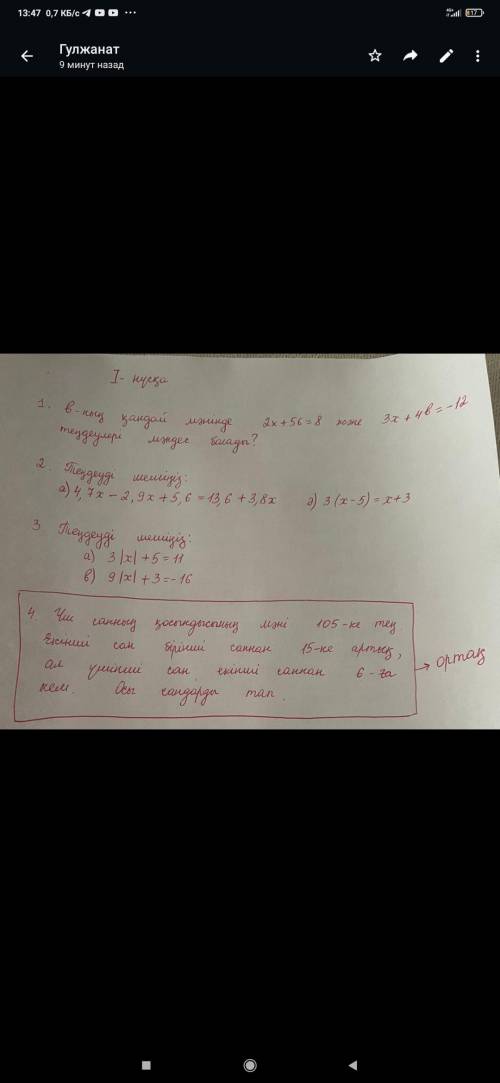 13:47 0,7 КБ/с
17
Гулжанат
9 минут назад
I- нұсқа
1. в-ның қандай мәнінде 2x+56=8 және 3x+4в=-12
теңдеулері мәндес болады?
2. Теңдеуді шешіңіз:
а) 4,7x-2,9x+5,6=13,6+3,8x ә) 3(x-5)=x+3
3. Теңдеуді шешіңіз:
а) 3|x|+5=11
в) 9|x|+3=-16
4. Үш санның қосындысының мәні 105-ке тең.
Екінші сан бірінші саннан 15-ке артық,
ал үшінші сан екінші саннан 6-ға → ортақ
кем. Осы сандарды тап.